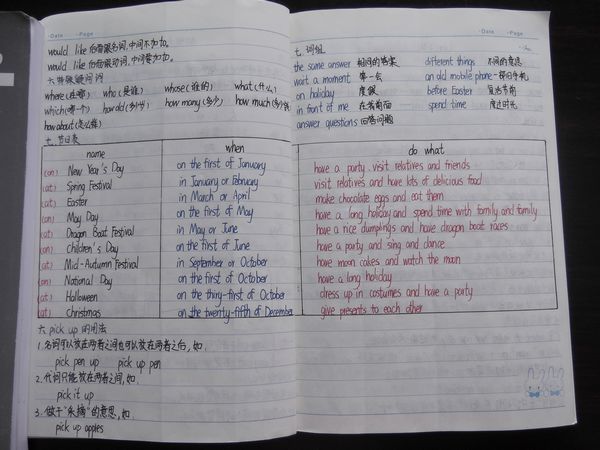 Date Page
would like 后面跟名词,中间不加to。
would like 后面跟动词,中间要加to。
六.特殊疑问词
where(在哪) who(是谁) whose(谁的) what(什么)
which(哪一个) how old(多少岁) how many(多少) how much(多少钱)
how about(怎么样)
七.节日表
name when
(on) New Year's Day on the first of January
(at) Spring Festival in January or February
(at) Easter in March or April
(on) May Day on the first of May
(at) Dragon Boat Festival in May or June
(on) Children's Day on the first of June
(at) Mid-Autumn Festival in September or October
(on) National Day on the first of October
(at) Halloween on the thiry-first of October
(at) Christmas on the twenty-fifth of December
六 pick up 的用法
1.名词可以放在两者之间也可以放在两者之后,如.
pick pen up pick up pen
2.代词只能放在两者之间,如.
pick it up
3.做于"采摘"的意思,如.
pick up apples
Date Page
七.词组
the same answer 相同的答案 different things 不同的意思
wait a moment 等一会 an old mobile phone 一部旧手机
on holiday 度假 before Easter 复活节前
in front of me 在我前面 spend time 度过时光
answer questions 回答问题
do what
have a party visit relatives and friends
visit relatives and have lots of delicious food
make chocolate eggs and eat them
have a long holiday and spend time with family and family
have a rice dumplings and have dragon boat races
have a party and sing and dance
have moon cakes and watch the moon
have a long holiday
dress up in costumes and have a party
give presents to each other